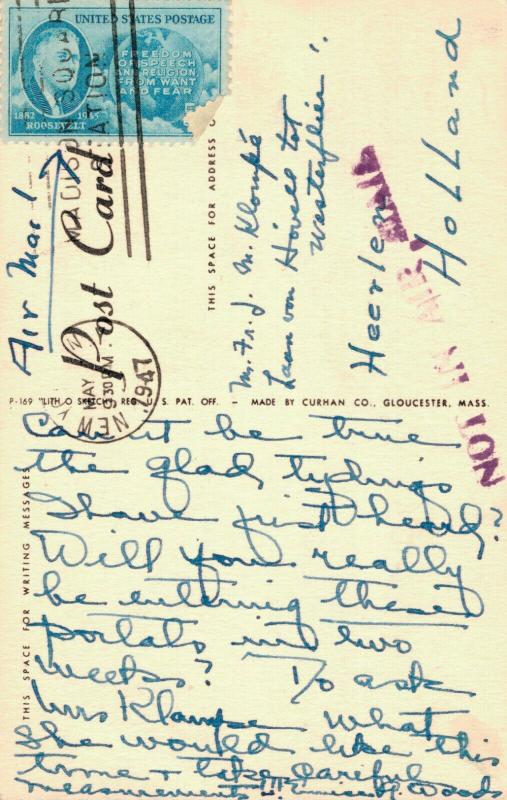 UNITED STATES POSTAGE
FREEDOM
OF SPEECH
AND RELIGION,
FROM WANT
AND FEAR
1882 1945
ROOSEVELT
MADISON SQUARE
STATION
NEW
MAY
9 30 PM
1947
Air Mail
Post Card
THIS SPACE FOR ADDRESS O
Mr. Fr. J. M. Klompé
Laan von Hövell tot
Westerflier
Heerlen
Holland
NOT IN AIR MAIL
P-169 "LITH-O SKETCH" REG. U. S. PAT. OFF. – MADE BY CURHAN CO., GLOUCESTER, MASS.
THIS SPACE FOR WRITING MESSAGES
Can it be true
the glad tydings
I have just heard?
Will you really
be entering these
portals in two
weeks? To ask
Mrs Klompe what
she would like this
time & take careful
measurements !!!